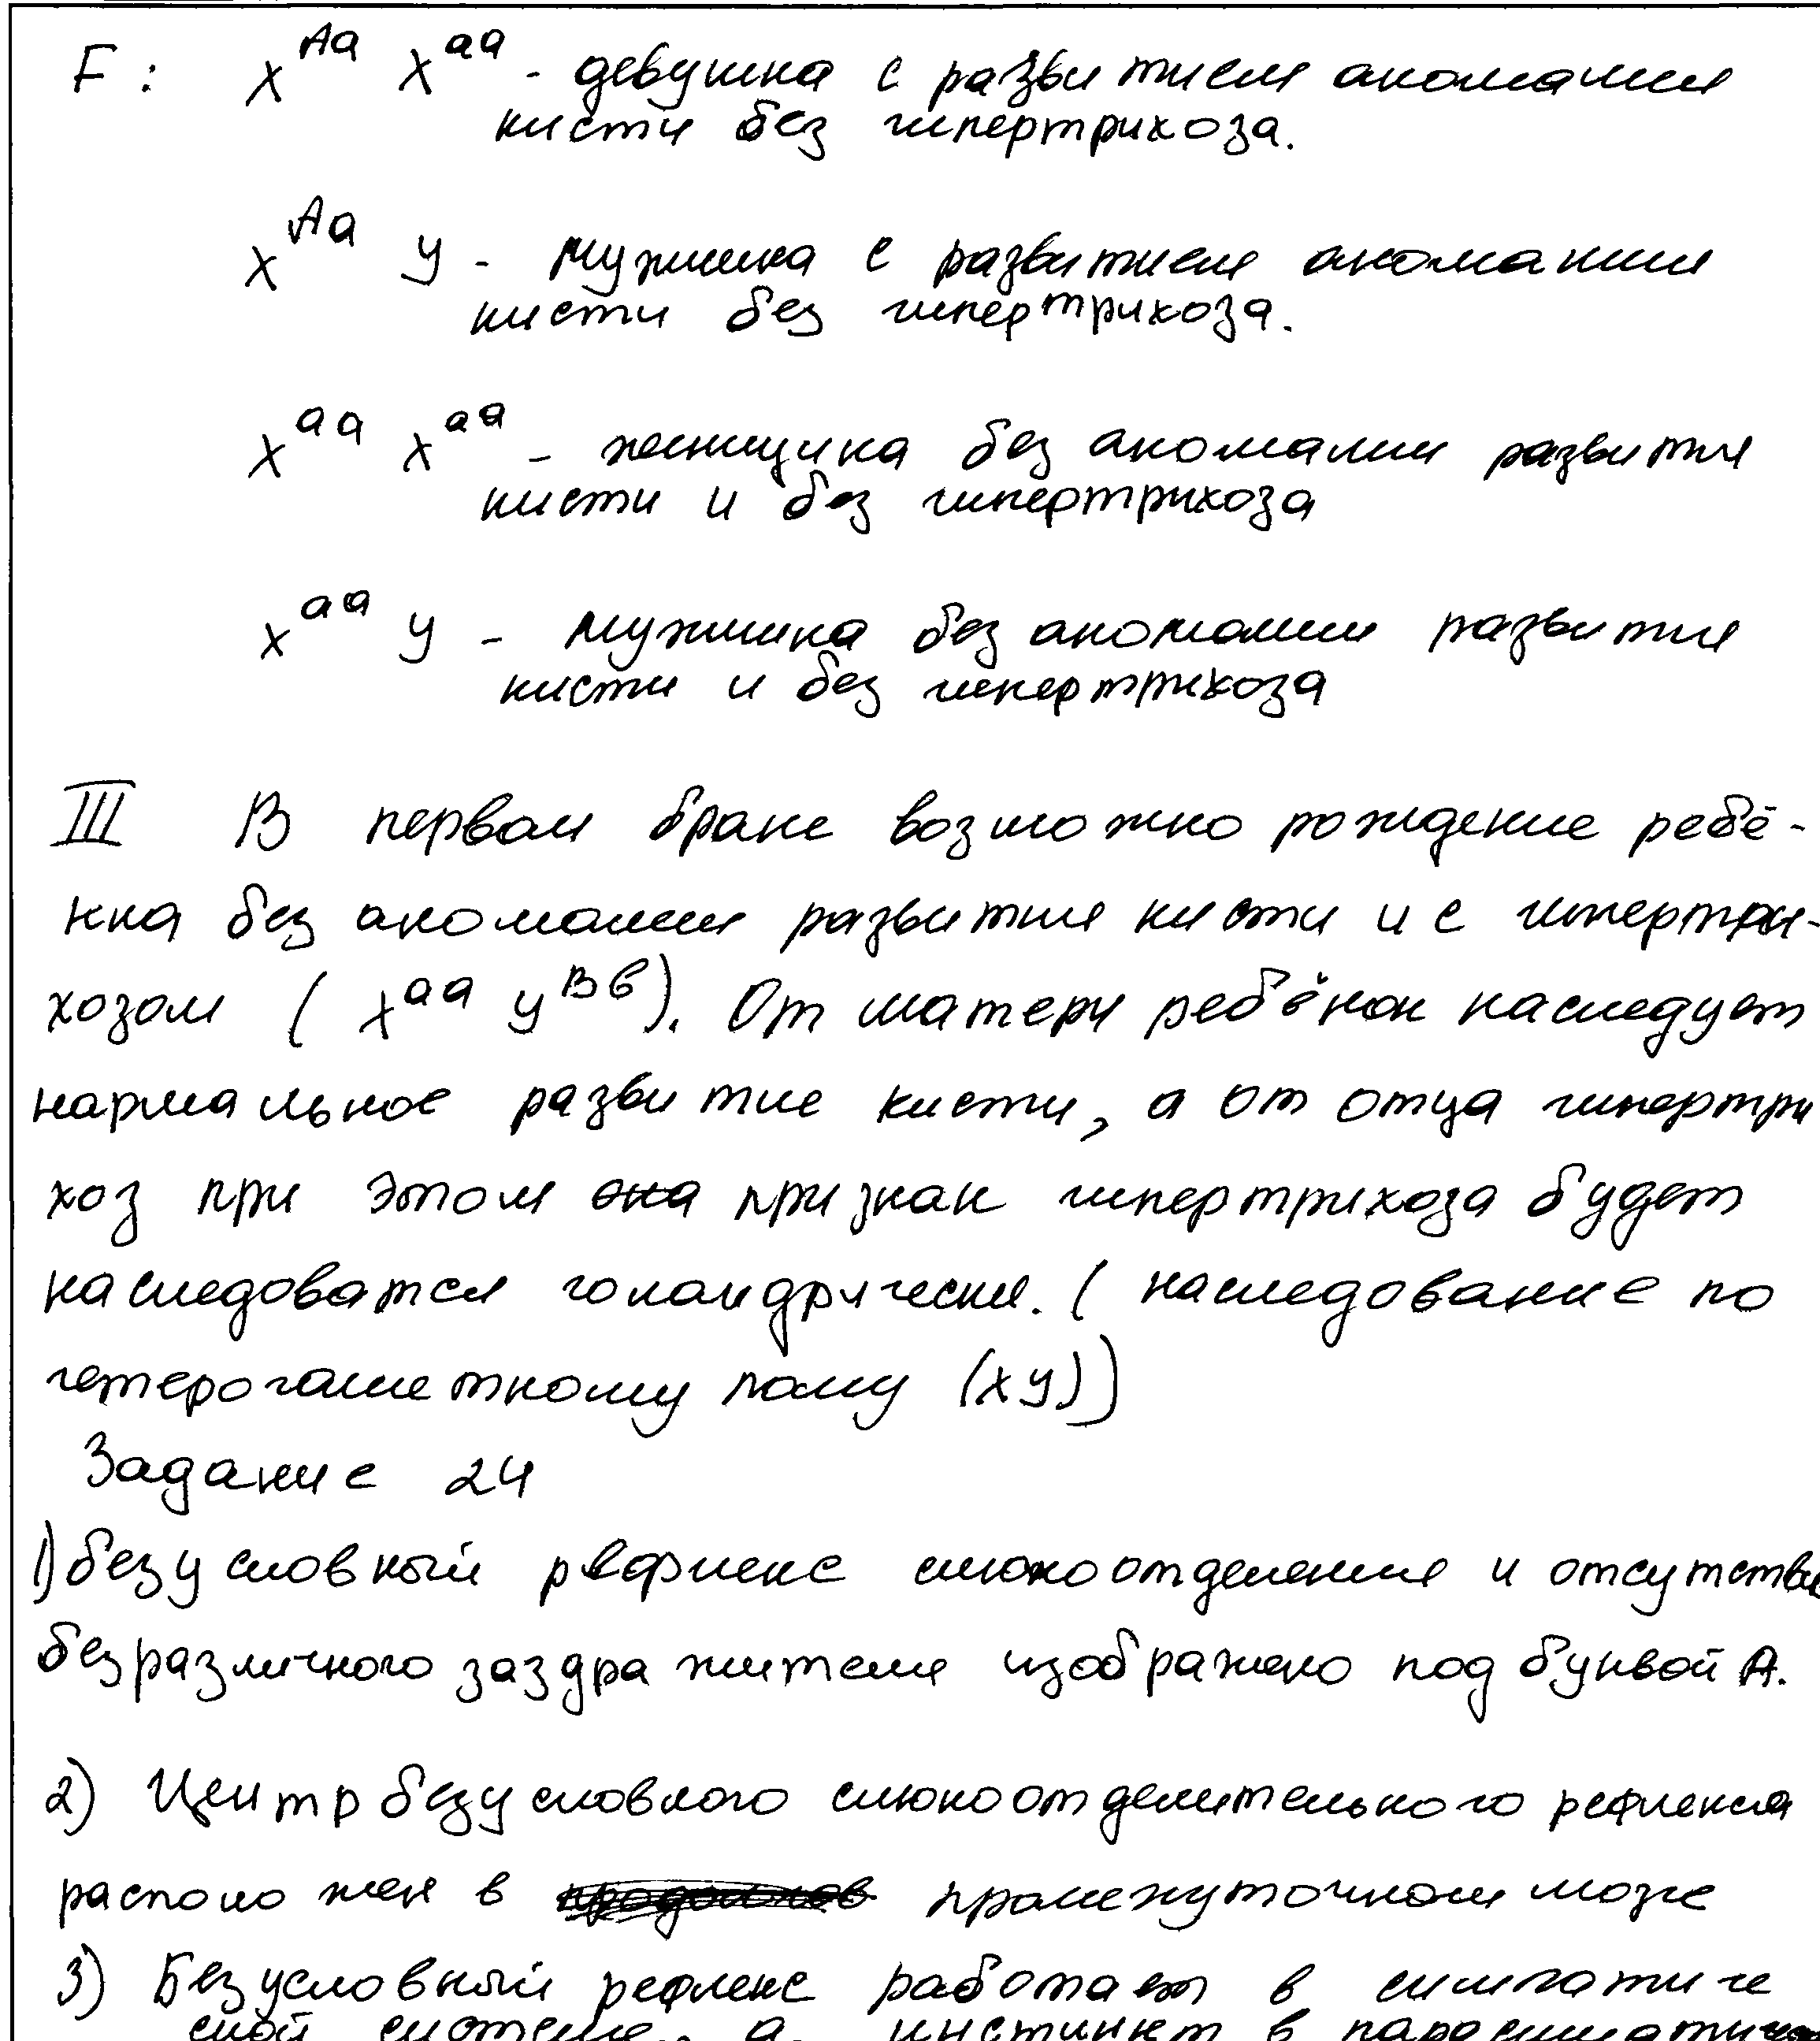 F: X^Aa X^aa - девушка с развитием аномалии
кисти без гипертрихоза.
X^Aa У - мужчина с развитием аномалии
кисти без гипертрихоза.
X^aa X^aa - женщина без аномалии развития
кисти и без гипертрихоза
X^aa У - мужчина без аномалии развития
кисти и без гипертрихоза
III В первом браке возможно рождение ребё-
нка без аномалии развития кисти и с гипертри-
хозом ( X^aa У^Вв). От матери ребёнок наследует
нармальное развитие кисти, а от отца гипертри
хоз при этом она признак гипертрихоза будет
наследоватся голандрически. ( наследование по
гетерогаметному полу (ху))
Задание 24
1) безусловный рефлекс слюноотделения и отсутствие
безразличного заздражителя изображено под буквой А.
2) Центр безусловного слюноотделительного рефлекса
расположен в промежуточном мозге
3) Безусловный рефлекс работает в симпатиче
ской системе, а инстинкт в парасимпатиче